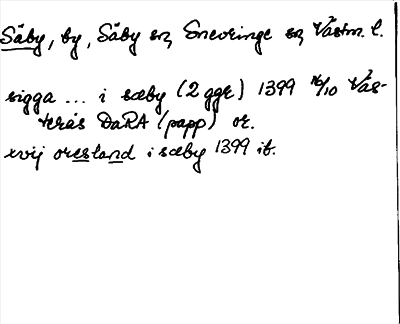 Säby, by, Säby sn, Snevringe sn, Västm. l.
sigga ... i sæby (2 ggr) 1399 16/10 Väs-
terås DaRA (papp) or.
xvij oresland i sæby 1399 ib.